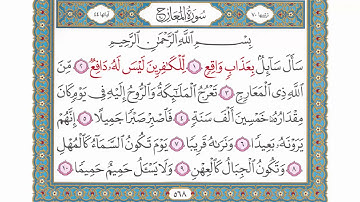 ترتيبها ٧٠ سُورَةُ المَعَارِجِ آياتها ٤٤
بِسْمِ اللَّهِ الرَّحْمَٰنِ الرَّحِيمِ
سَأَلَ سَائِلٌ بِعَذَابٍ وَاقِعٍ ١ لِّلْكَافِرِينَ لَيْسَ لَهُ دَافِعٌ ٢ مِّنَ
اللَّهِ ذِي الْمَعَارِجِ ٣ تَعْرُجُ الْمَلَائِكَةُ وَالرُّوحُ إِلَيْهِ فِي يَوْمٍ كَانَ
مِقْدَارُهُ خَمْسِينَ أَلْفَ سَنَةٍ ٤ فَاصْبِرْ صَبْرًا جَمِيلًا ٥ إِنَّهُمْ
يَرَوْنَهُ بَعِيدًا ٦ وَنَرَاهُ قَرِيبًا ٧ يَوْمَ تَكُونُ السَّمَاءُ كَالْمُهْلِ
٨ وَتَكُونُ الْجِبَالُ كَالْعِهْنِ ٩ وَلَا يَسْأَلُ حَمِيمٌ حَمِيمًا ١٠
٥٦٨